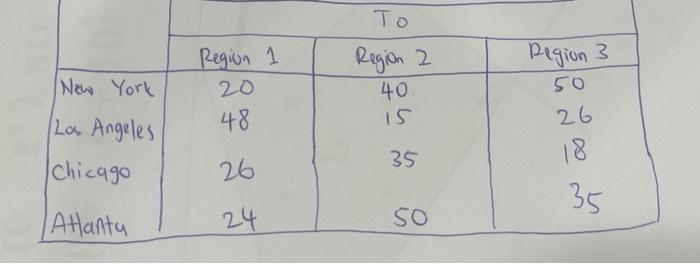 To
Region 1 Region 2 Region 3
New York 20 40 50
Los Angeles 48 15 26
Chicago 26 35 18
Atlanta 24 50 35